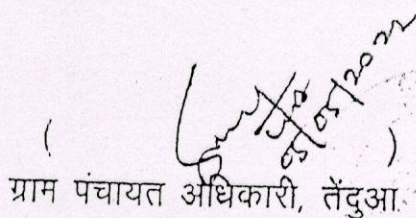 ( 05/05/2022 )
ग्राम पंचायत अधिकारी, तेंदुआ